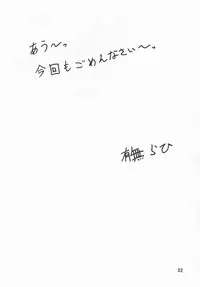 あう〜。
今回もごめんなさい〜。
有無らひ
32